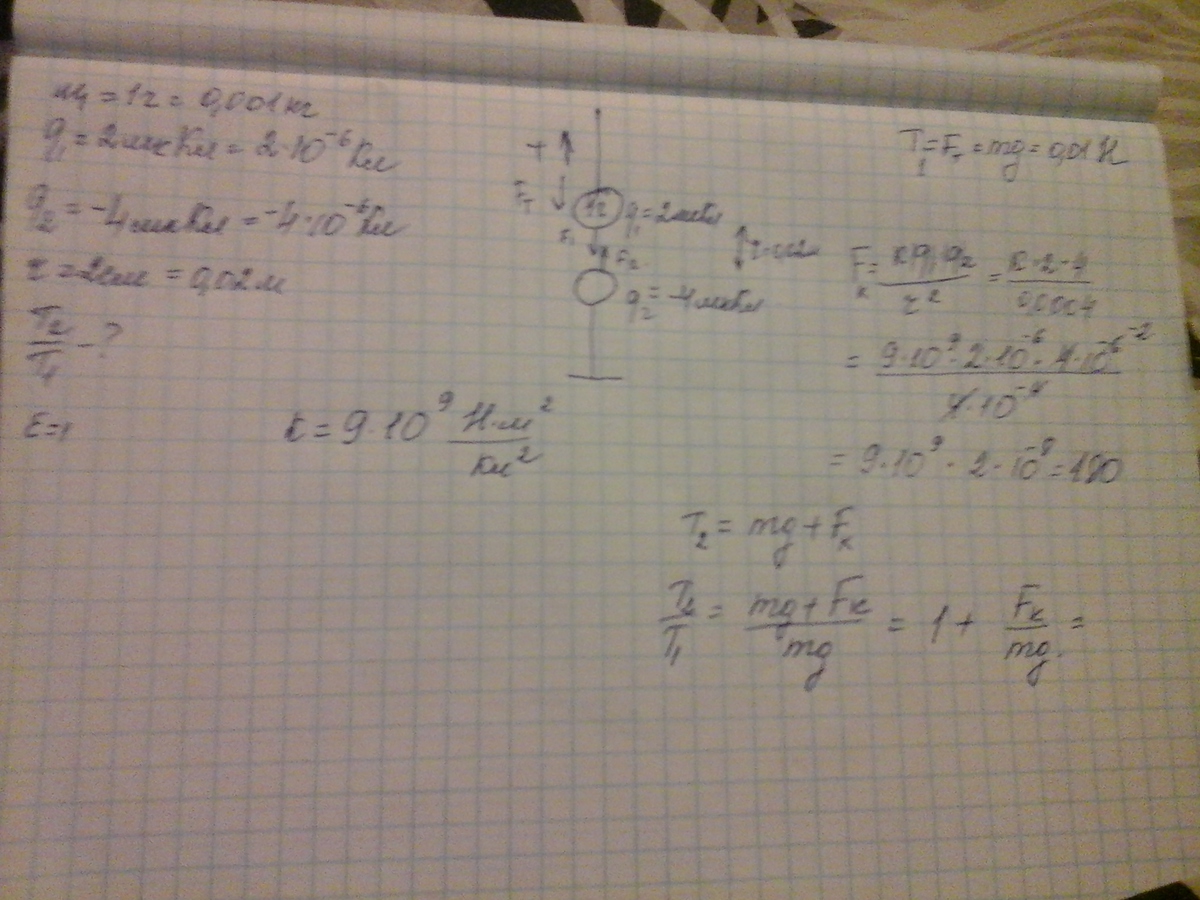 m₁ = 1г = 0,001кг
q₁ = 2мкКл = 2·10⁻⁶Кл
q₂ = -4мкКл = -4·10⁻⁶Кл
r = 2см = 0,02м
T₂/T₁ - ?
ε=1
k = 9·10⁹ Н·м²/Кл²
+
Fт
1г
q₁=2мкКл
F₁
F₂
r=0,02м
q₂=-4мкКл
T₁=Fт=mg=0,01Н
Fк=k|q₁|q₂/r² = k·2·4/0,0004
= 9·10⁹·2·10⁻⁶·4·10⁻⁶ ⁻²/4·10⁻⁴
= 9·10⁹·2·10⁻⁸=180
T₂ = mg + Fк
T₂/T₁ = mg+Fк/mg = 1 + Fк/mg =